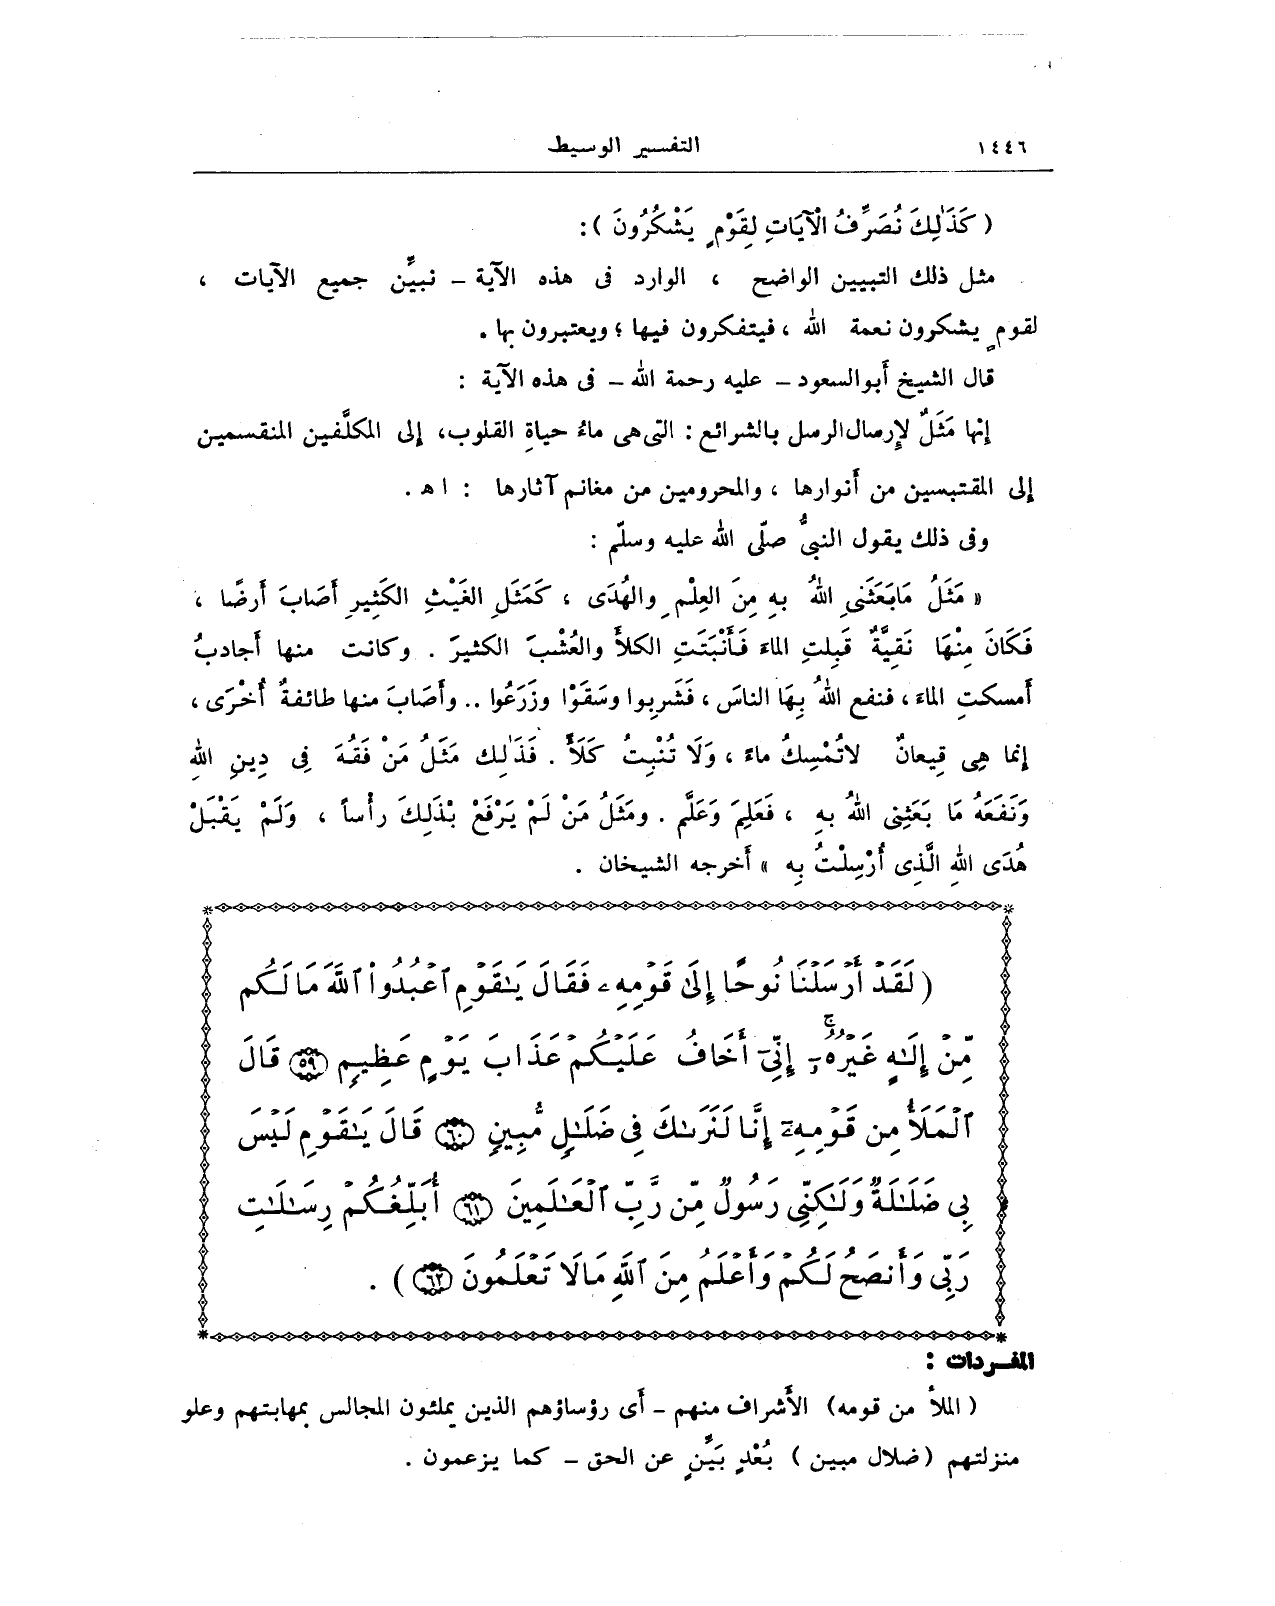 ١٤٤٦ التفسير الوسيط
( كَذَٰلِكَ نُصَرِّفُ الْآيَاتِ لِقَوْمٍ يَشْكُرُونَ ) :
مثل ذلك التبيين الواضح ، الوارد فى هذه الآية – نبيِّن جميع الآيات ،
لقومٍ يشكرون نعمة الله ، فيتفكرون فيها ؛ ويعتبرون بها .
قال الشيخ أبو السعود – عليه رحمة الله – فى هذه الآية :
إنها مَثَلٌ لإرسال الرسل بالشرائع : التى هى ماءُ حياةِ القلوب، إلى المكلَّفين المنقسمين
إلى المقتبسين من أنوارها ، والمحرومين من مغانم آثارها : ا هـ .
وفى ذلك يقول النبىُّ صلّى الله عليه وسلّم :
« مَثَلُ مَابَعَثَنِى اللهُ بِهِ مِنَ العِلْمِ والهُدَى ، كَمَثَلِ الغَيْثِ الكَثِيرِ أَصَابَ أَرضًا ،
فَكَانَ مِنْهَا نَقِيَّةٌ قَبِلتِ الماءَ فَأَنْبَتَتِ الكلأَ والعُشْبَ الكثيرَ . وكانت منها أَجادبُ
أَمسكتِ الماءَ ، فنفع اللهُ بِهَا الناسَ ، فَشَرِبوا وسَقَوْا وزَرَعُوا .. وأَصَابَ منها طائفةٌ أُخْرَى ،
إنما هِى قِيعانٌ لاتُمْسِكُ ماءً ، وَلَا تُنْبِتُ كَلَأً . فَذَٰلِك مَثَلُ مَنْ فَقُهَ فِى دِينِ اللهِ
وَنَفَعَهُ مَا بَعَثِنِى اللهُ بهِ ، فَعَلِمَ وَعَلَّم . ومَثَلُ مَنْ لَمْ يَرْفَع بْذَلِكَ رأْساً ، وَلَمْ يَقْبَلْ
هُدَى اللهِ الَّذِى أُرْسِلْتُ بِه » أَخرجه الشيخان .
( لَقَدْ أَرْسَلْنَا نُوحًا إِلَىٰ قَوْمِهِۦ فَقَالَ يَٰقَوْمِ ٱعْبُدُوا۟ ٱللَّهَ مَا لَكُم
مِّنْ إِلَٰهٍ غَيْرُهُۥٓ ۚ إِنِّىٓ أَخَافُ عَلَيْكُمْ عَذَابَ يَوْمٍ عَظِيمٍ ٥٩ قَالَ
ٱلْمَلَأُ مِن قَوْمِهِۦٓ إِنَّا لَنَرَىٰكَ فِى ضَلَٰلٍ مُّبِينٍ ٦٠ قَالَ يَٰقَوْمِ لَيْسَ
بِى ضَلَٰلَةٌ وَلَٰكِنِّى رَسُولٌ مِّن رَّبِّ ٱلْعَٰلَمِينَ ٦١ أُبَلِّغُكُمْ رِسَٰلَٰتِ
رَبِّى وَأَنصَحُ لَكُمْ وَأَعْلَمُ مِنَ ٱللَّهِ مَالَا تَعْلَمُونَ ٦٢ ) .
المفردات :
( الملأُ من قومه) الأَشراف منهم – أَى رؤساؤهم الذين يملئون المجالس بمهابتهم وعلو
منزلتهم (ضلال مبين ) بُعْدٍ بَيِّنٍ عن الحق – كما يزعمون .